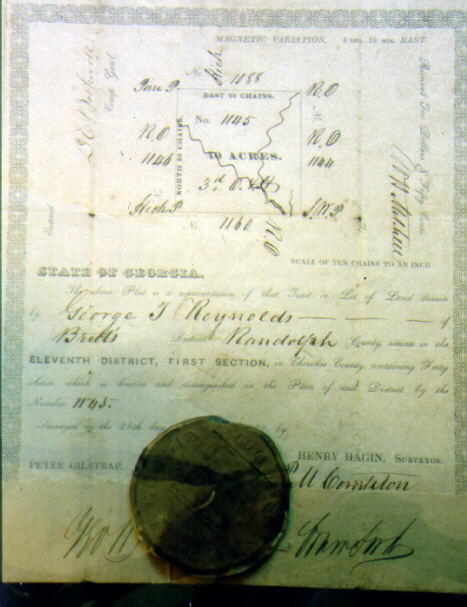 MAGNETIC VARIATION, 4 DEG. 10 MIN. EAST.
No. 1088
Hick
Pine P.
R.O
EAST 20 CHAINS.
No. 1145
R.O
1146
NORTH 20 CHAINS.
40 ACRES.
3rd
R.O
1144
Hick P
S.W.P
No. 1160
R.O
Received Ten Dollars & Fifty Cents
SCALE OF TEN CHAINS TO AN INCH
STATE OF GEORGIA.
The above Plat is a representation of that Tract or Lot of Land drawn
by George T Reynolds of
Britts District Randolph County, situate in the
ELEVENTH DISTRICT, FIRST SECTION, in Cherokee County, containing Forty
Acres, which is known and distinguished in the Plan of said District by the
Number 1145.
Surveyed on the 28th day by
HENRY HAGIN, SURVEYOR.
PETER GILSTRAP,
Compton
Geo
Crawford